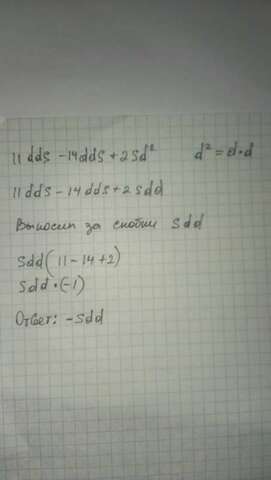 11 dds - 14dds + 2sd² d² = d·d
11 dds - 14 dds + 2 sdd
Выносим за скобки sdd
sdd(11 - 14 + 2)
sdd·(-1)
Ответ: -sdd